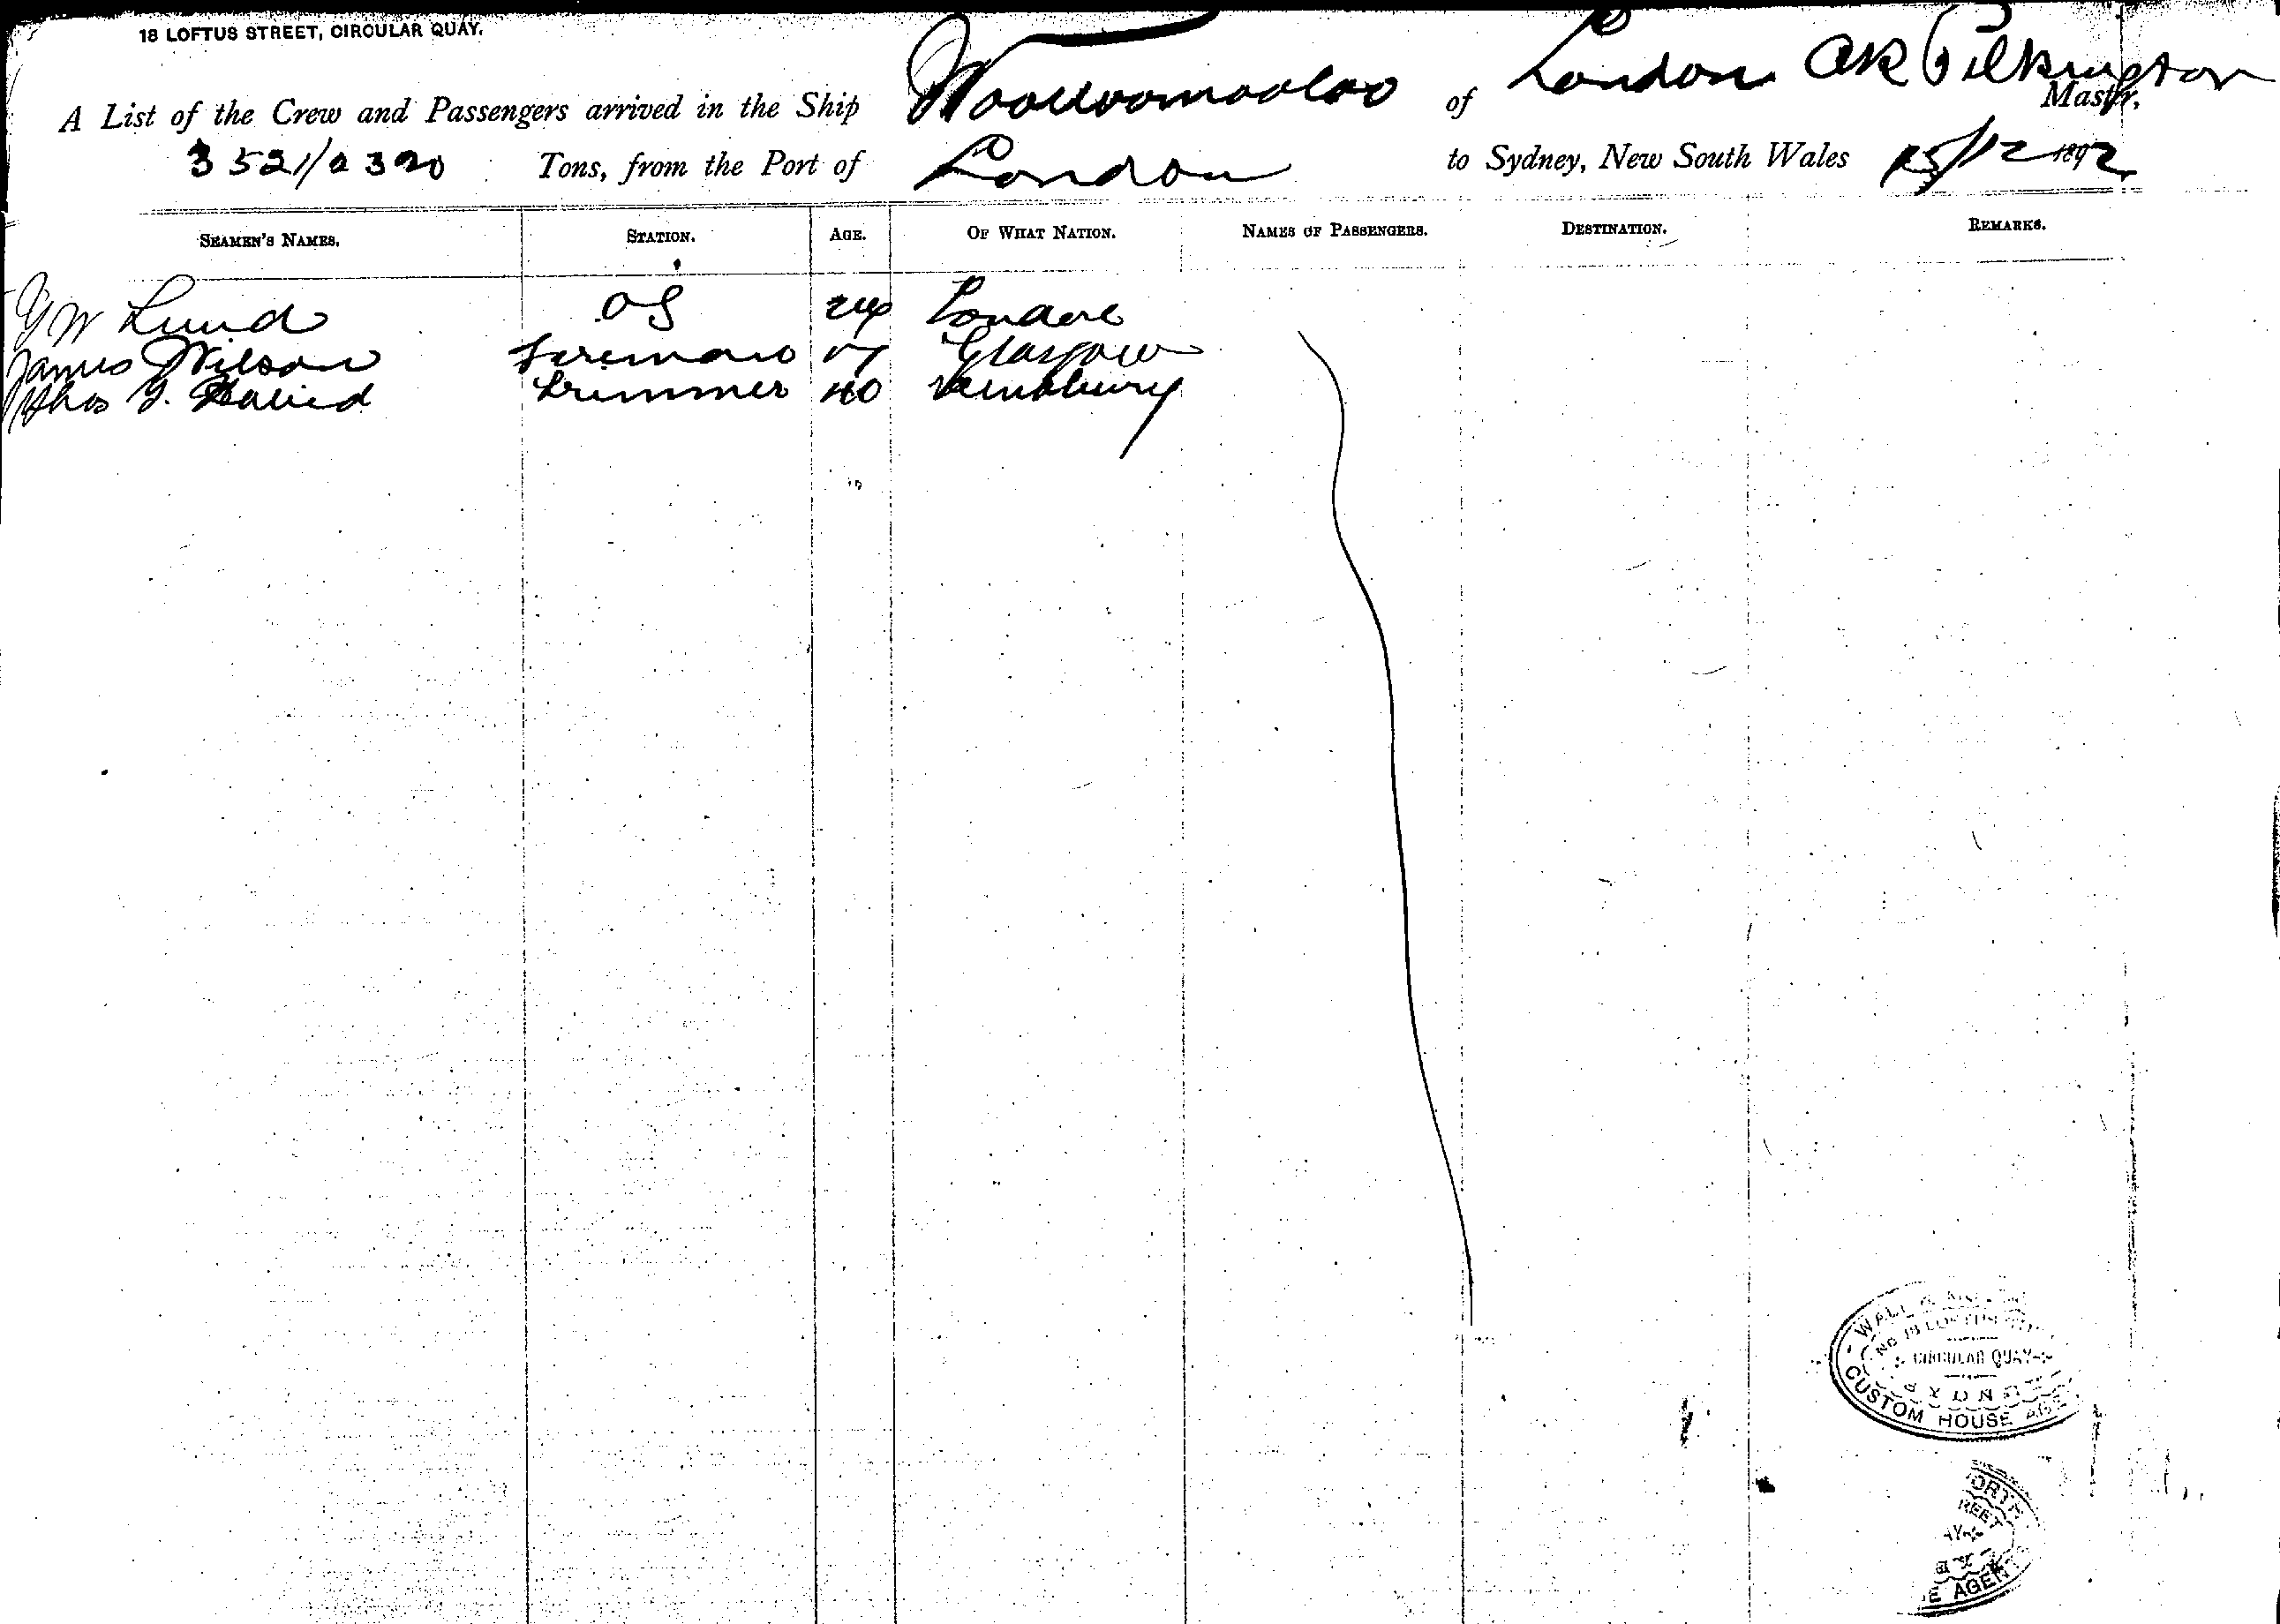 18 LOFTUS STREET, CIRCULAR QUAY.
A List of the Crew and Passengers arrived in the Ship Woolloomooloo of London A R Pilkington Master,
3521/2320 Tons, from the Port of London to Sydney, New South Wales 25/12 1892
SEAMEN'S NAMES. STATION. AGE. OF WHAT NATION. NAMES OF PASSENGERS. DESTINATION. REMARKS.
G W Lund OS 24 London
James Wilson Fireman Glasgow
Thos J. David Trimmer 40
WALL &
NO 18 LOFTUS
CIRCULAR QUAY
SYDNEY
CUSTOM HOUSE AGE
ORTH
REET
AY
E AGENTS